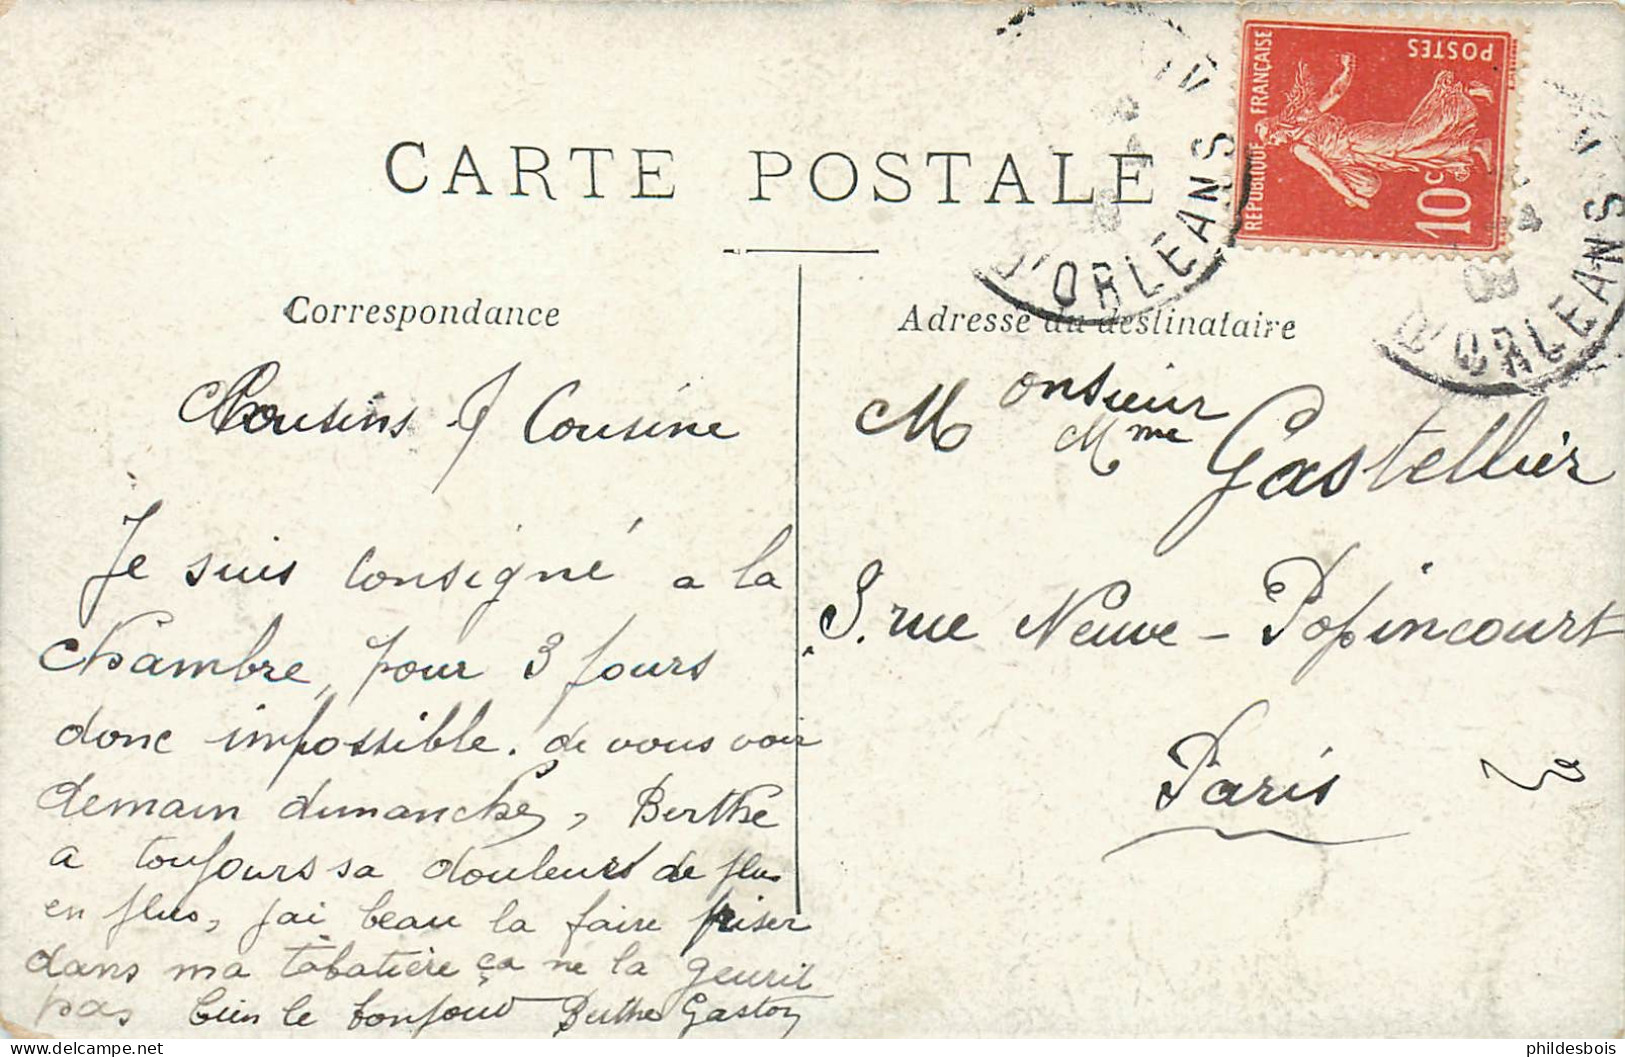 CARTE POSTALE
Correspondance
Cousins & Cousine
Je suis consigné a la
chambre, pour 3 jours
donc impossible. de vous voir
demain dimanche, Berthe
a toujours sa douleurs de plus
en plus, jai beau la faire priser
dans ma tabatière ça ne la geurit
pas bien le bonjour Berthe Gaston
REPUBLIQUE FRANÇAISE
POSTES
10c
D'ORLEANS
09
D'ORLEANS
09
Adresse du destinataire
Monsieur
Mme Gastellier
3. rue Neuve - Popincourt
Paris
phildesbois